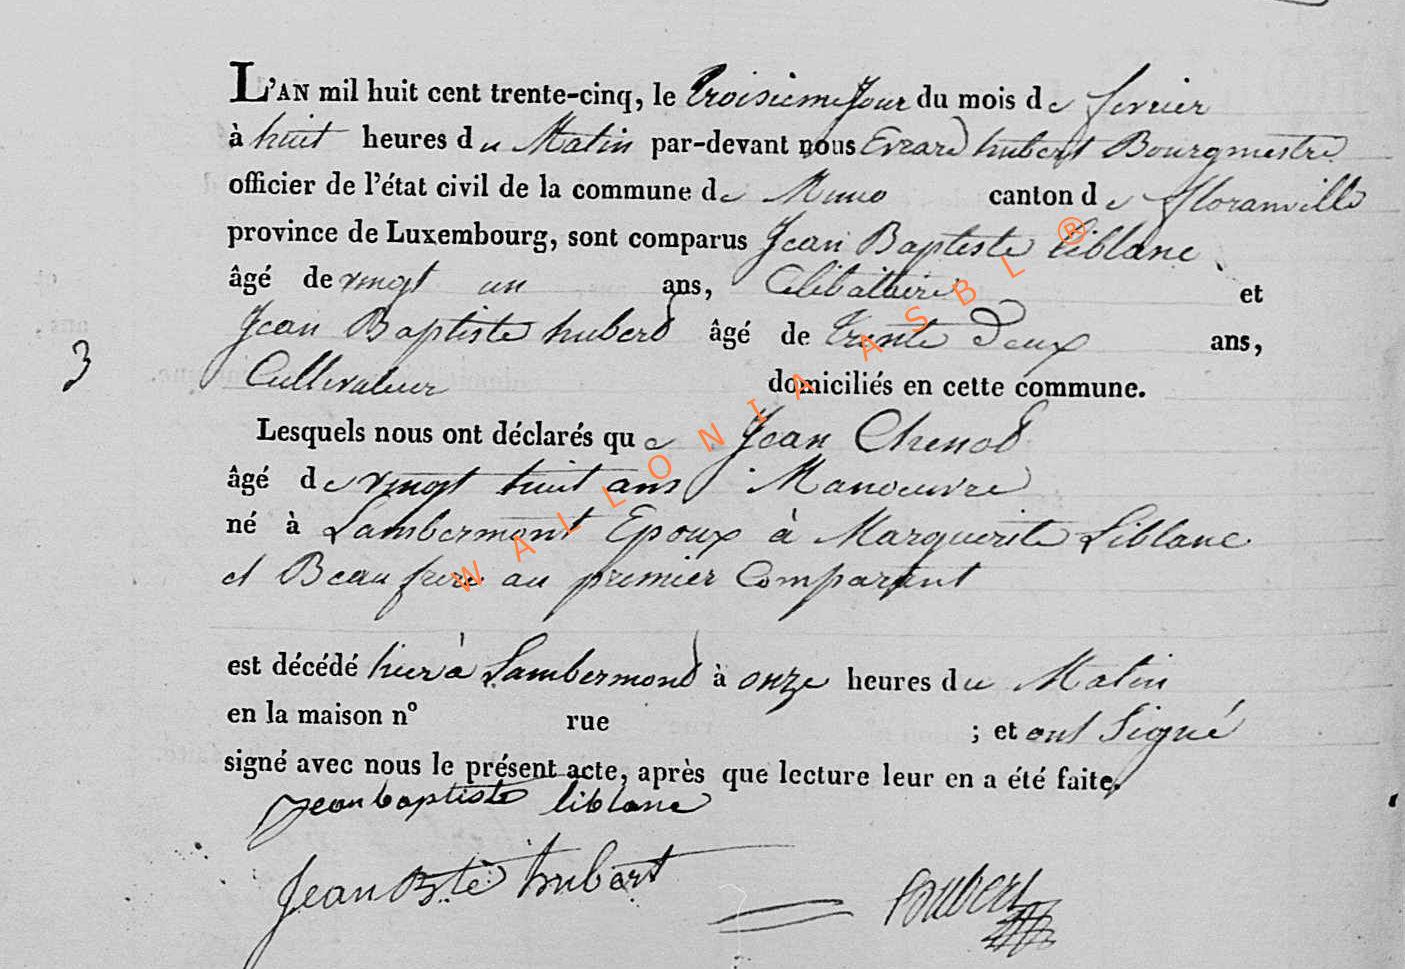 L'AN mil huit cent trente-cinq, le troisieme Jour du mois de fevrier
à huit heures du Matin par-devant nous Evrard hubert Bourgmestre
officier de l'état civil de la commune de Muno canton de floranville
province de Luxembourg, sont comparus Jean Baptiste Liblanc
âgé de vingt un ans, Celibattaire et
Jean Baptiste huberd âgé de trente deux ans,
3
Cultivateur domiciliés en cette commune.
Lesquels nous ont déclarés que Jean Chenod
âgé de vingt huit ans Manoeuvre
né à Lambermont Epoux à Marguerite Liblanc
et Beau frere au premier Comparant
est décédé hier à Lambermond à onze heures du Matin
en la maison n° rue ; et ont Signé
signé avec nous le présent acte, après que lecture leur en a été faite.
jean baptiste liblanc
Jean Bte hubert
WALLONIA ASBL ®